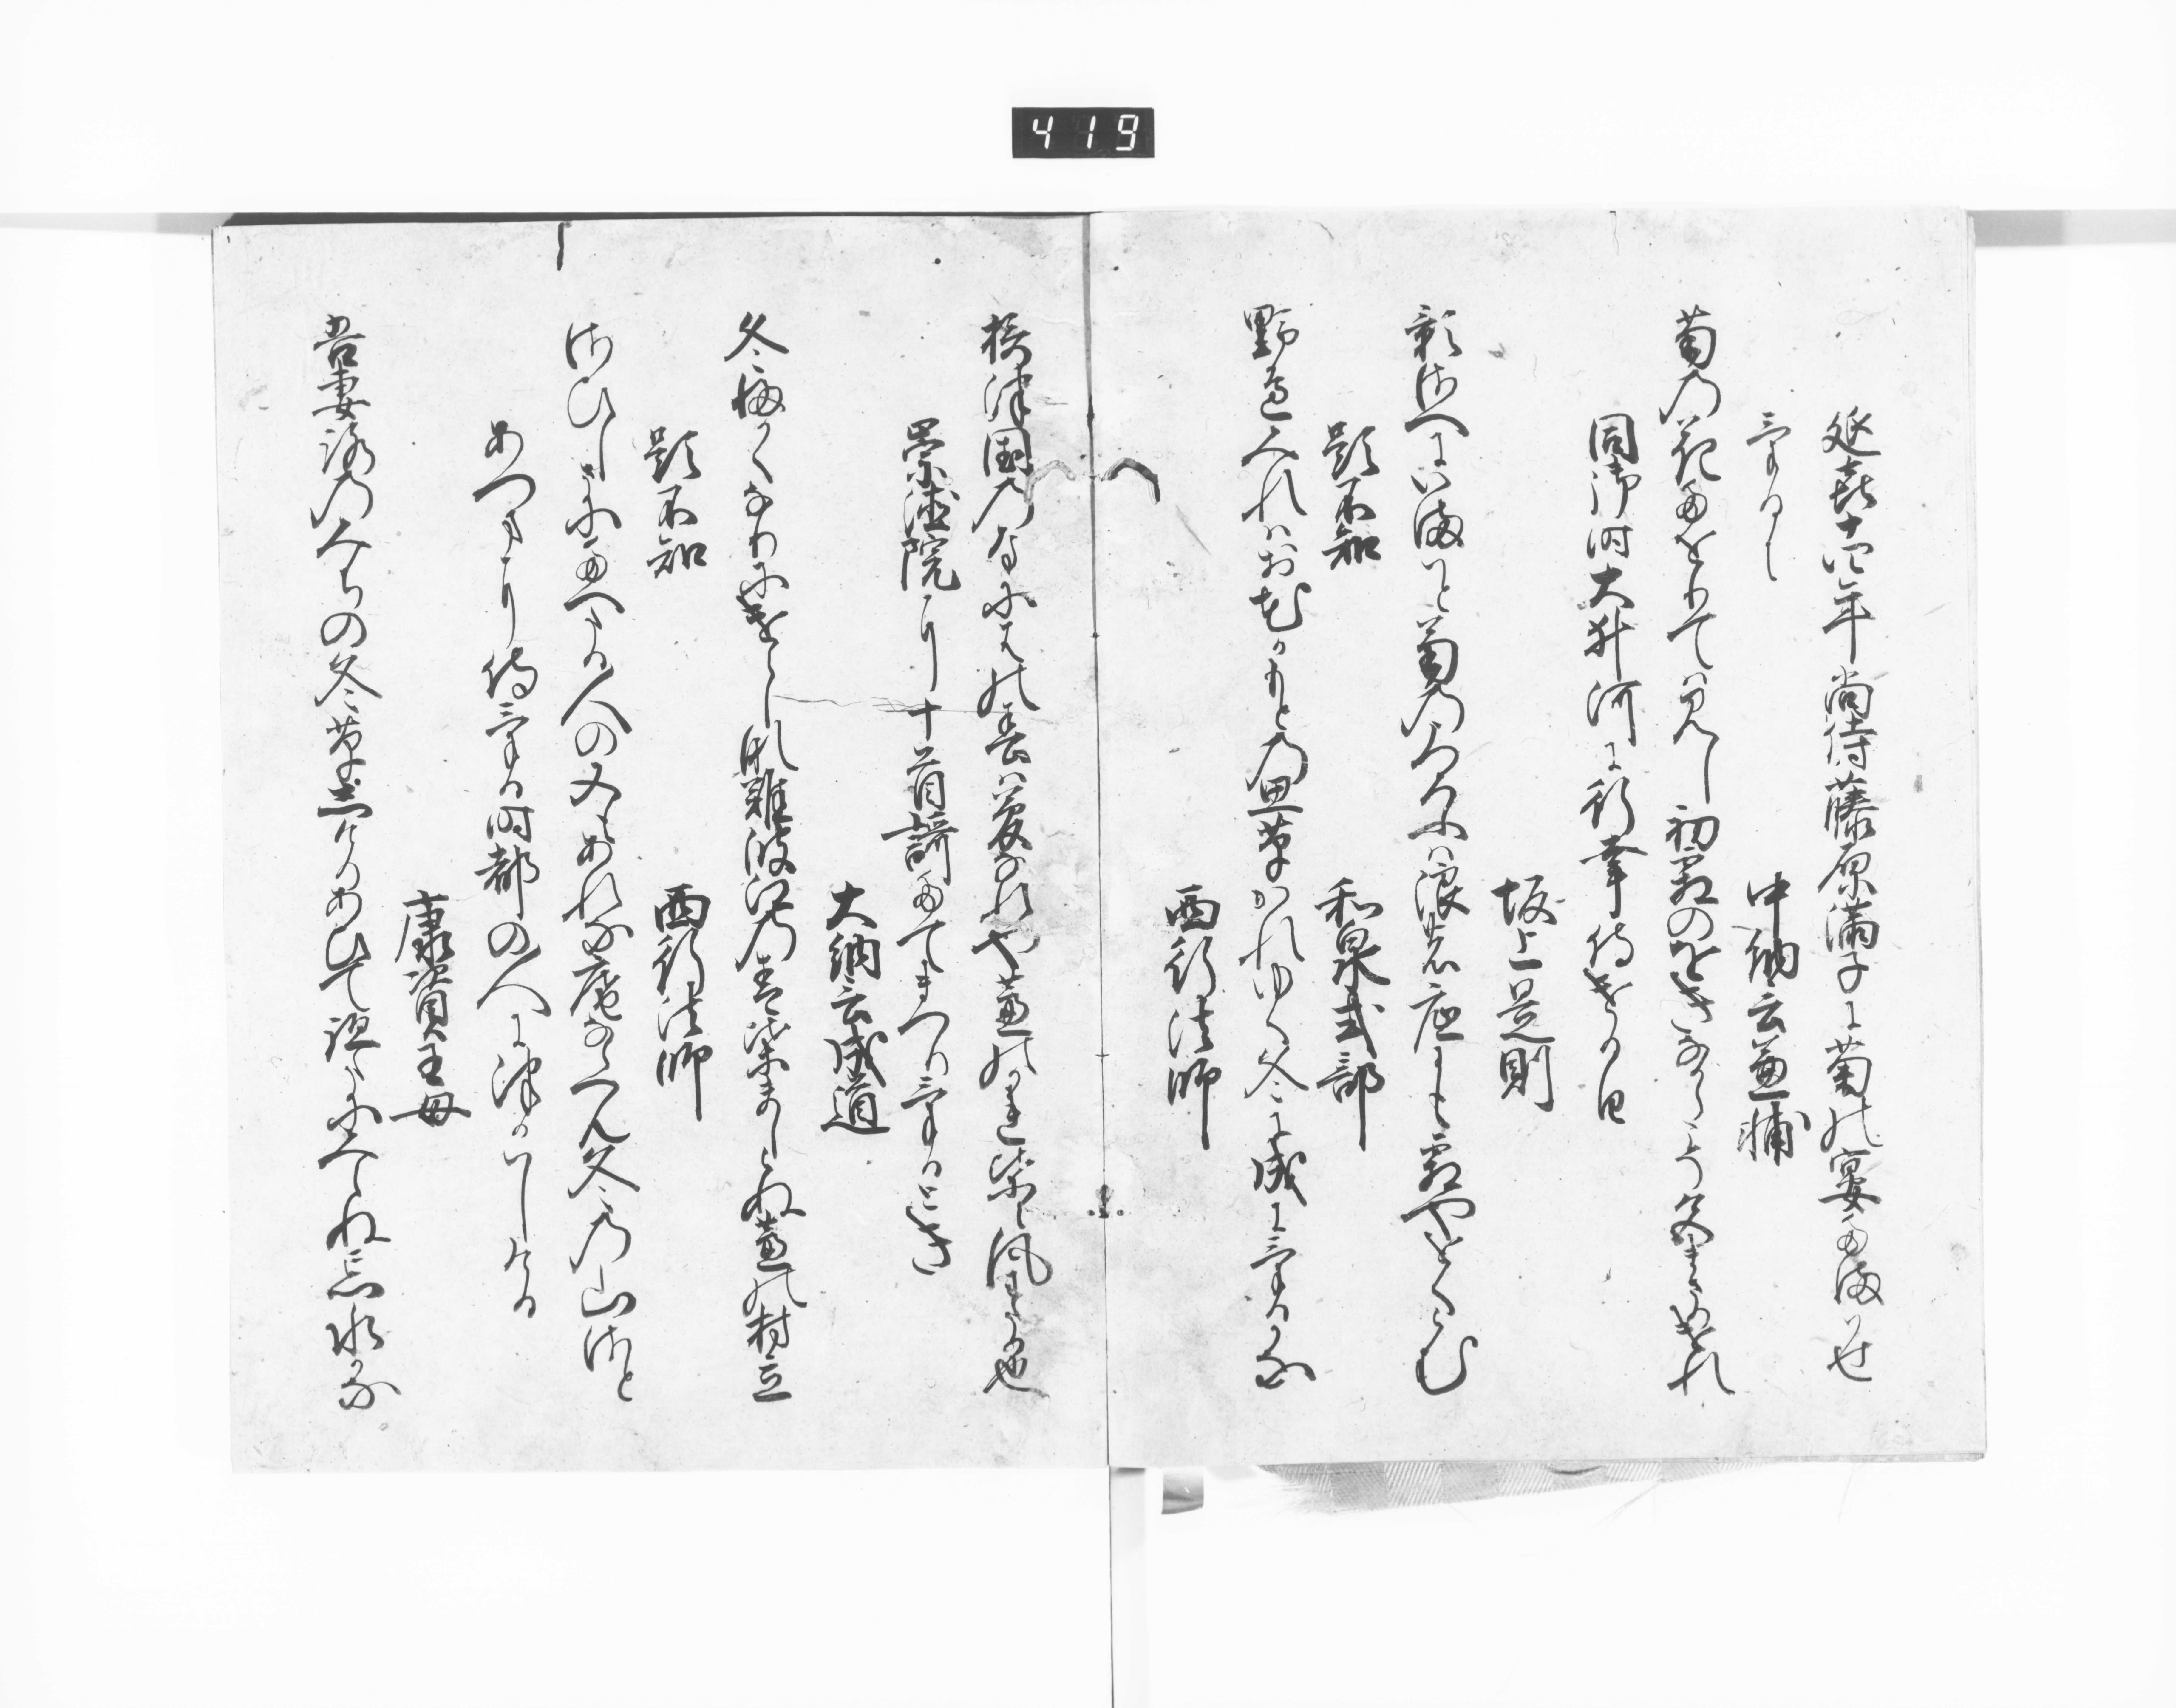 419
延喜十四年尚侍藤原満子に菊の宴たまはせ
ける
中納言兼輔
菊の花たをりては見し初霜のをきなからこそ色まさりけれ
同御時大井河に行幸侍ける日
坂上是則
影さへにいまはと菊のうつろふは浪の底にも霜やをくらむ
題不知
和泉式部
野邊みれはおはなかもとの思草かれゆく冬に成にけるかな
西行法師
津国のなにはの春は夢なれや蘆のかれ葉に風わたる也
崇徳院に十首哥たてまつりけるとき
大納言成通
冬ふかくなりにけらしな難波江の青葉ましらぬ蘆の村立
題不知
西行法師
さひしさにたへたる人の又もあれな庵ならへん冬の山さと
あつまに侍ける時都の人につかはしける
康資王母
吾妻路のみちの冬草しけりあひて跡たにみえぬ忘水かな